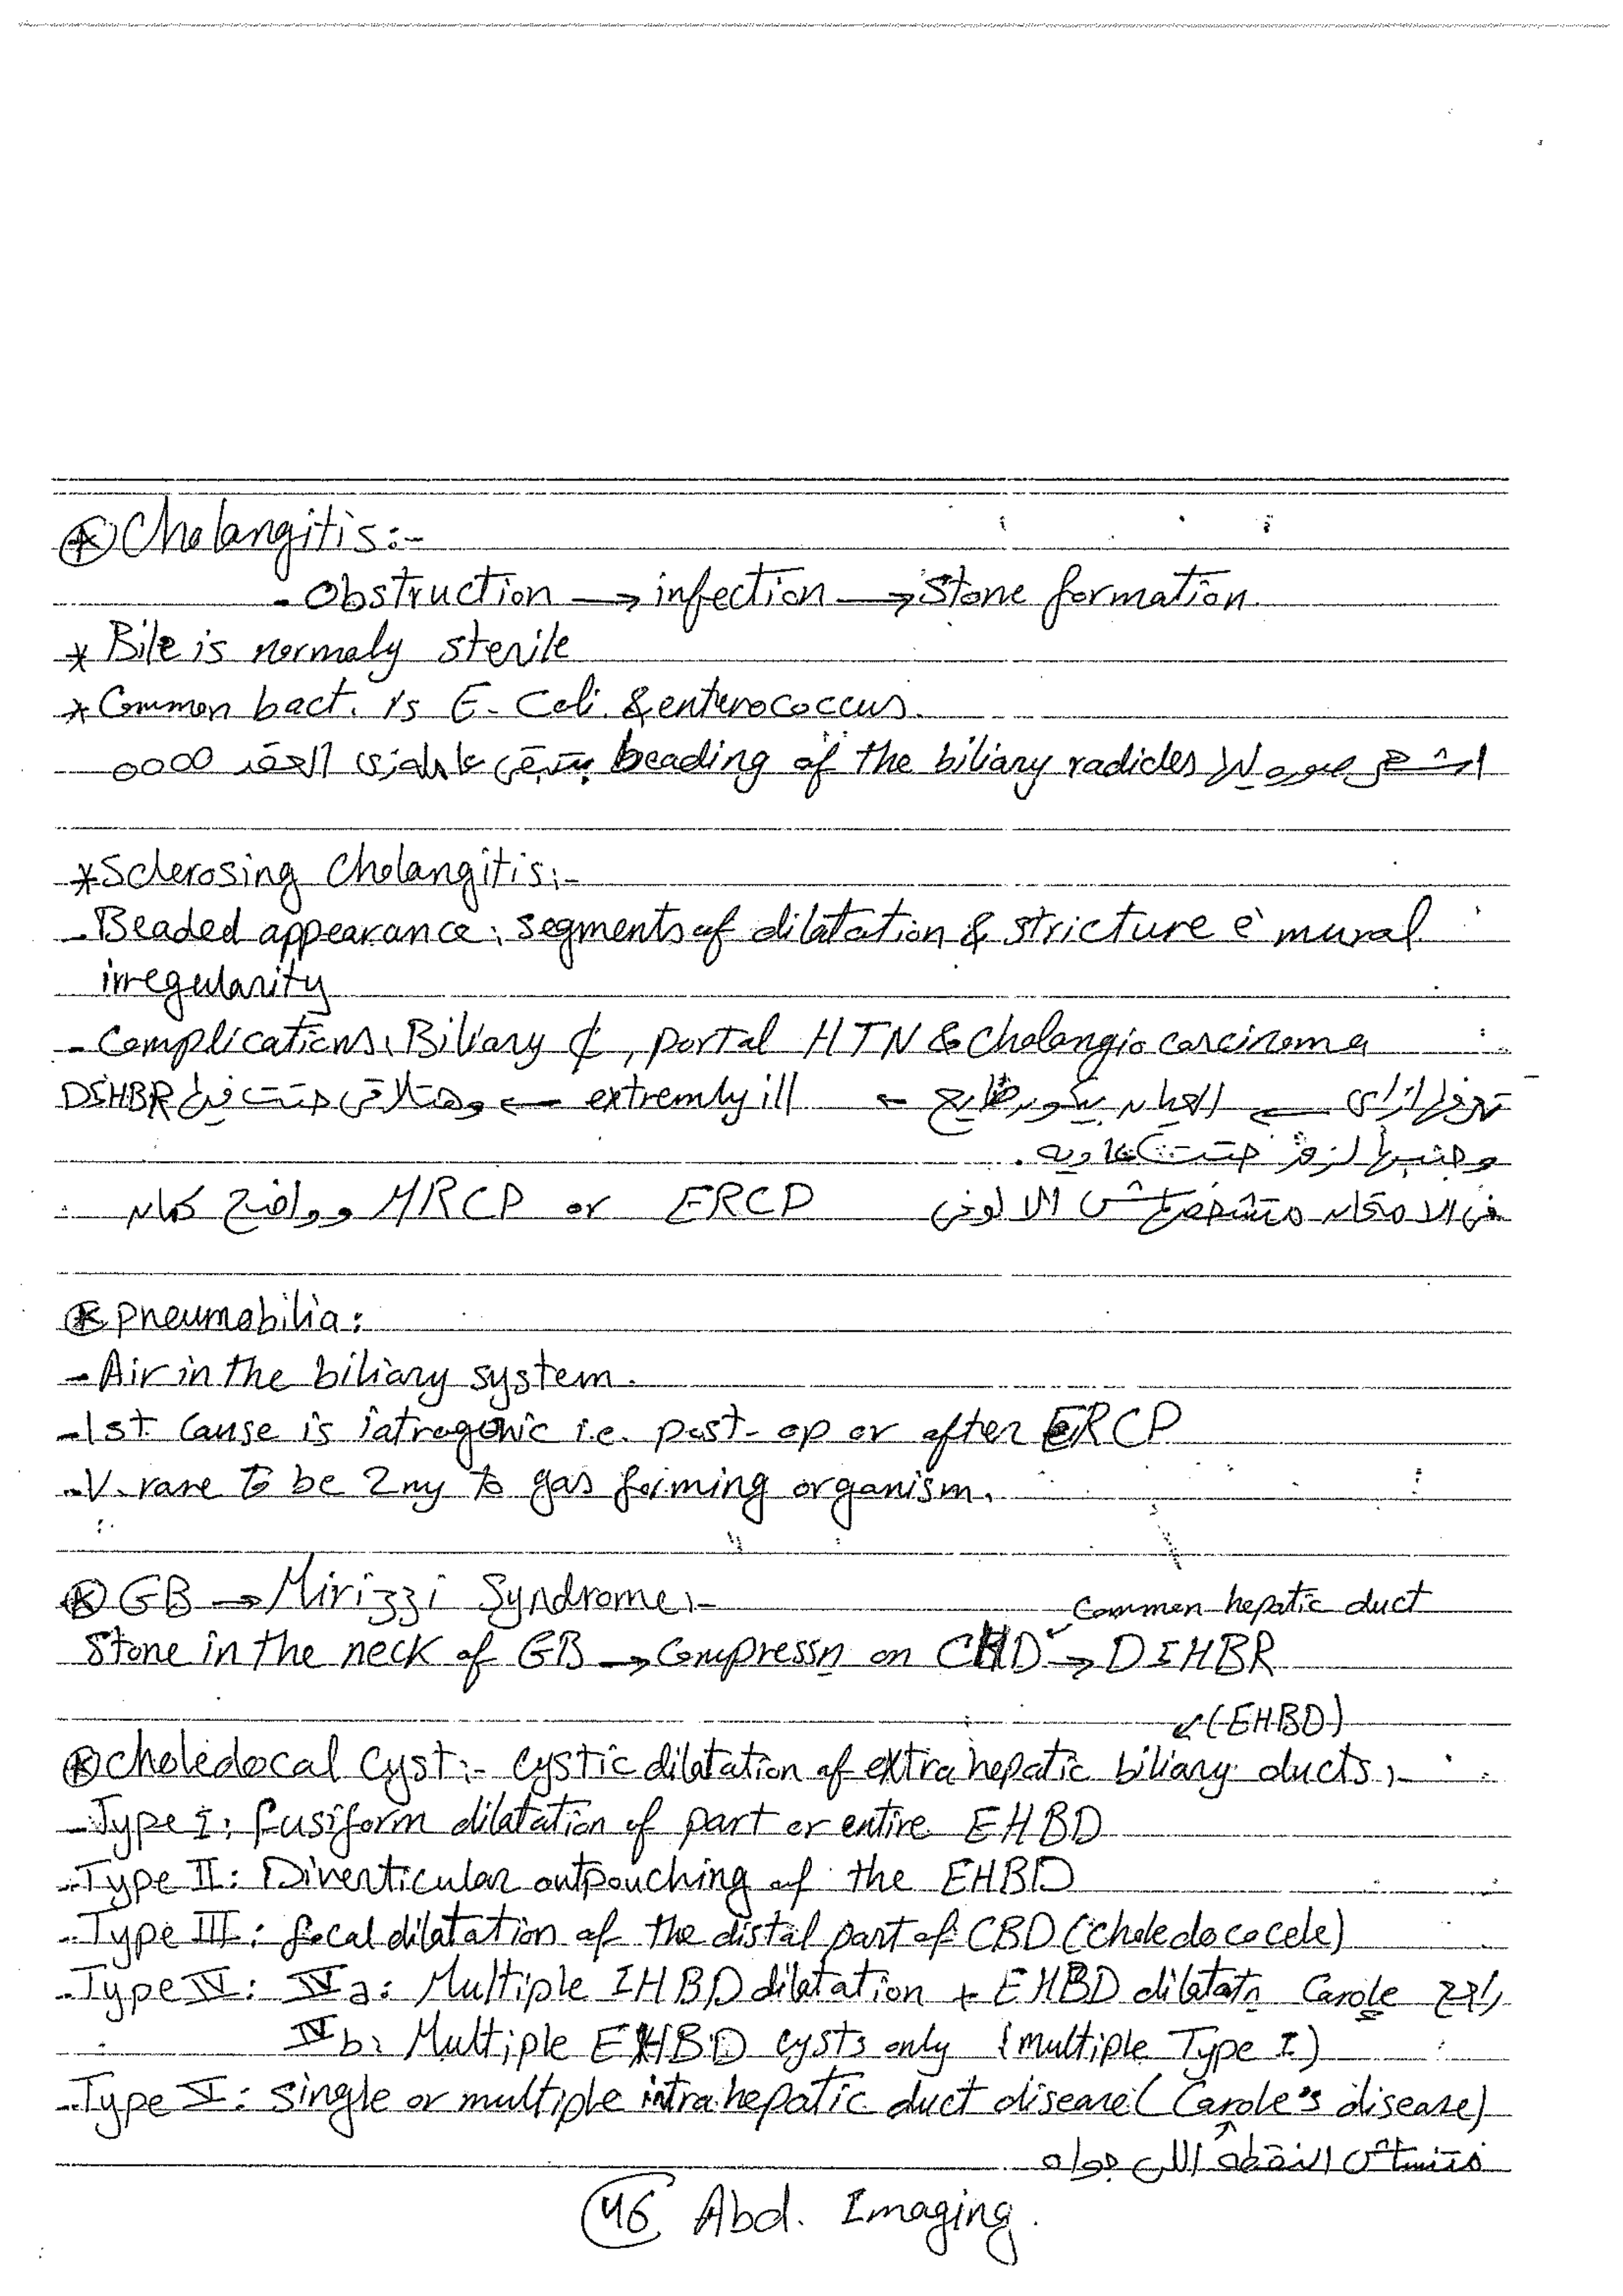 ⊛ Cholangitis:-
- Obstruction → infection → Stone formation.
* Bile is normaly sterile
* Common bact. is E. Coli. & enterococcus.
اشهر صورة ليها beading of the biliary radicles بتبقى عاملة زى العقد oooo
* Sclerosing Cholangitis:-
- Beaded appearance: segments of dilatation & stricture è mural
irregularity
- Complications: Biliary ₵, portal HTN & Cholangiocarcinoma
تعرفها ازاى ← العيان بيكون ضايع ← extremly ill ← وهتلاقى حتت فيها DIHBR
وجنبها لزق حتت عادية.
فى الامتحان متشخصهاش الا لو فى ERCP or MRCP وواضح كمان
⊛ pneumobilia:
- Air in the biliary system.
- 1st cause is iatrogenic i.e. post-op or after ERCP
- V. rare to be 2ny to gas forming organism.
⊛ GB → Mirizzi Syndrome:-
Common hepatic duct
Stone in the neck of GB → Compressn on CHD → DIHBR
(EHBD)
⊛ Choledocal Cyst:- cystic dilatation of extra hepatic biliary ducts:-
- Type I: fusiform dilatation of part or entire EHBD
- Type II: Diverticular outpouching of the EHBD
- Type III: focal dilatation of the distal part of CBD (choledococele)
- Type IV: IVa: Multiple IHBD dilatation + EHBD dilatatn Carole راجع
IVb: Multiple EHBD cysts only (multiple Type I)
- Type V: single or multiple intrahepatic duct disease (Carole's disease)
متنساش النقطة اللى جواه
46 Abd. Imaging.